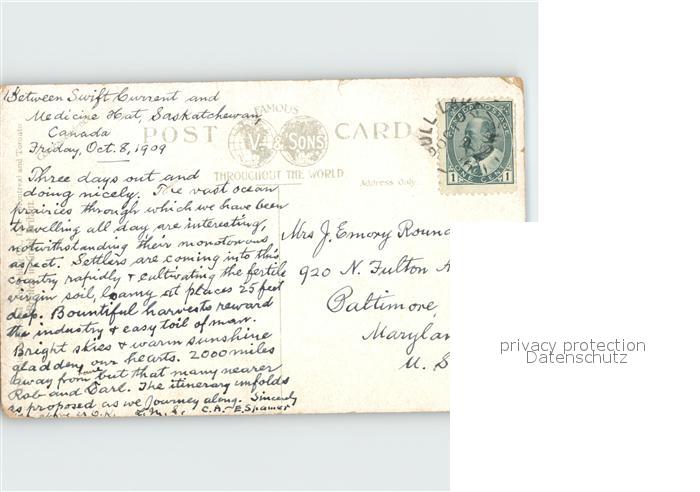 Between Swift Current and
Medicine Hat, Saskatchewan
Canada
Friday, Oct. 8, 1909
FAMOUS
POST V & SONS CARD
THROUGHOUT THE WORLD
Address Only.
CANADA POSTAGE
1 ONE CENT 1
Three days out and
doing nicely. The vast ocean
prairies through which we have been
travelling all day are interesting,
notwithstanding their monotonous
aspect. Settlers are coming into this
country rapidly & cultivating the fertile
virgin soil, loamy at places 25 feet
deep. Bountiful harvests reward
the industry & easy toil of man.
Bright skies & warm sunshine
gladden our hearts. 2000 miles
away from home but that many nearer
Rob and Carl. The itinerary unfolds
as proposed as we journey along. Sincerely
C.A. E. Spamer
Mrs J. Emory Roun
920 N. Fulton A
Baltimore
Marylan
U. S
privacy protection
Datenschutz